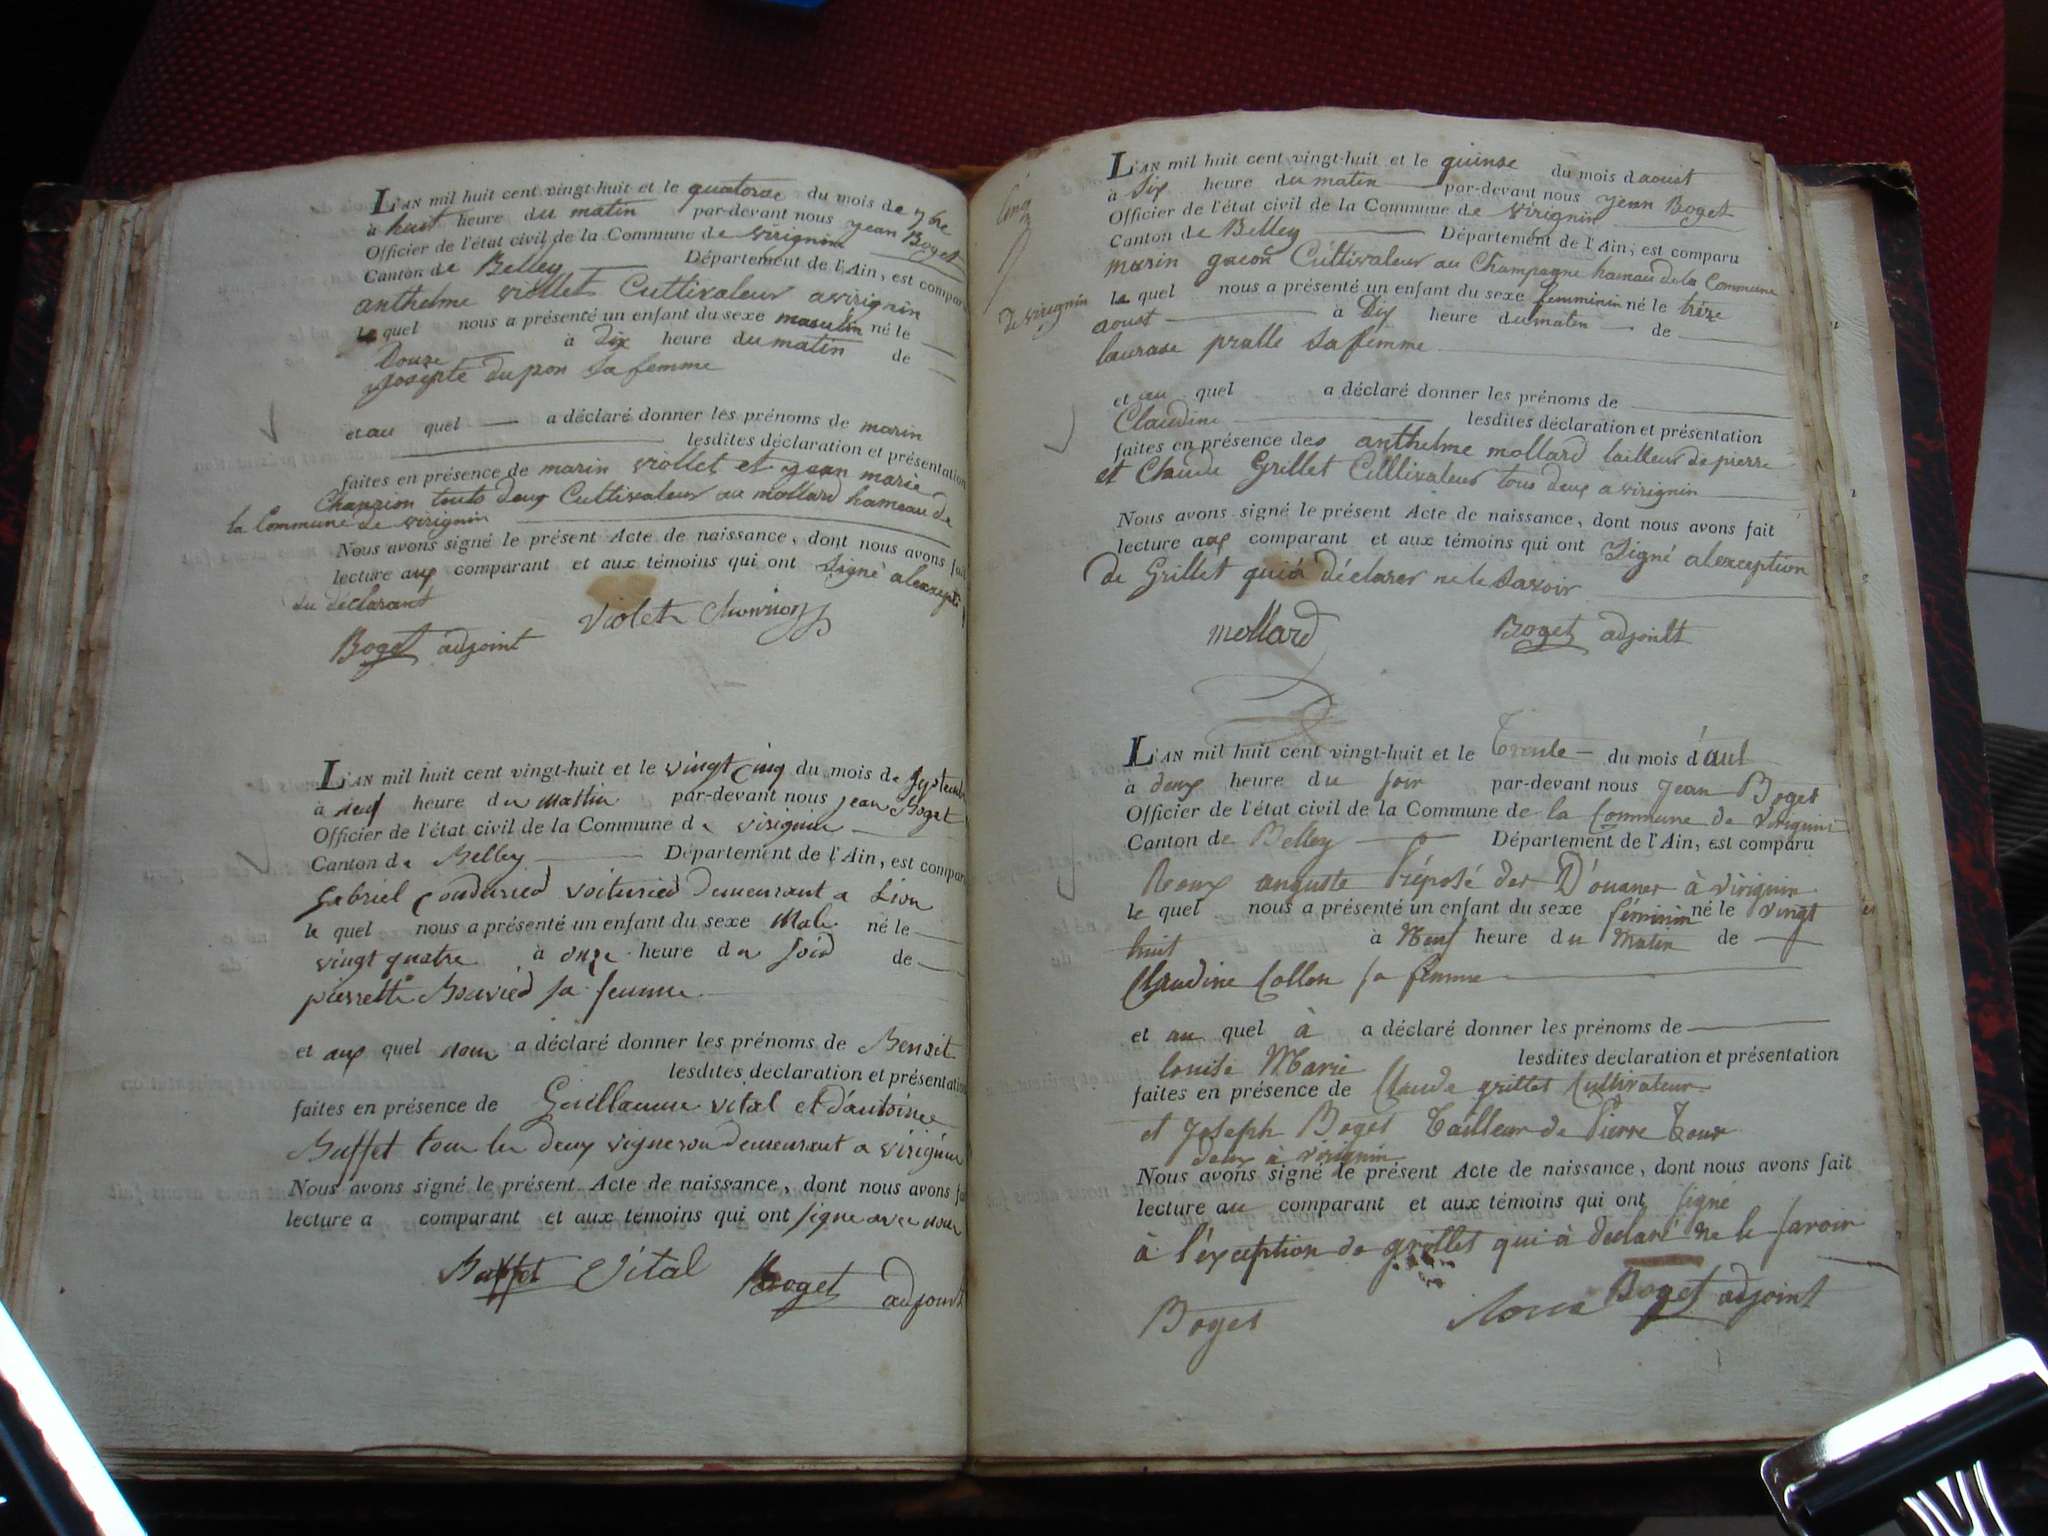 L'AN mil huit cent vingt-huit et le quatorze du mois de 7bre
à huit heure du matin par-devant nous jean Boget
Officier de l'état civil de la Commune de virignin
Canton de Belley Département de l'Ain, est compar
anthelme viollet Cultivateur a virignin
le quel nous a présenté un enfant du sexe masculin né le
Douze à dix heure du matin de
Josephte dupon sa femme
et au quel a déclaré donner les prénoms de marin
lesdites déclaration et présentation
faites en présence de marin viollet et jean marie
Chanrion touts deux Cultivateur au mollard hameau de
la Commune de virignin
Nous avons signé le présent Acte de naissance, dont nous avons fait
lecture aux comparant et aux témoins qui ont signé alexcepti
du déclarant
Violet Chanrion
Boget adjoint
L'AN mil huit cent vingt-huit et le vingt cinq du mois de
à neuf heure du mattin par-devant nous jean Boget
Officier de l'état civil de la Commune de virignin
Canton de Belley Département de l'Ain, est compar
gabriel voituried demeurant a Lion
le quel nous a présenté un enfant du sexe Male né le
vingt quatre à onze heure du soir de
pierrette sa femme
et aux quel nous a déclaré donner les prénoms de Benoit
lesdites declaration et présentation
faites en présence de Guillaume vital et d'antoine
Buffet tous les deux vigneron demeurant a virignin
Nous avons signé le présent Acte de naissance, dont nous avons fai
lecture a comparant et aux témoins qui ont signe avec nous
Buffet Vital Boget adjoint
L'AN mil huit cent vingt-huit et le quinze du mois d aoust
à Six heure du matin par-devant nous jean Boget
Officier de l'état civil de la Commune de virignin
Canton de Belley Département de l'Ain, est comparu
marin gacon Cultivateur au Champagne hameau de la Commune
de virignin
le quel nous a présenté un enfant du sexe femminin né le trèze
aoust à Dix heure du matin de
pralle sa femme
et au quel a déclaré donner les prénoms de
Claudine lesdites déclaration et présentation
faites en présence des anthelme mollard tailleur de pierre
et Claude Grillet Cultivateur tous deux a virignin
Nous avons signé le présent Acte de naissance, dont nous avons fait
lecture aux comparant et aux témoins qui ont Signé alexception
de Grillet qui a déclarer ne le Savoir
mollard Boget adjoint
L'AN mil huit cent vingt-huit et le Trente du mois d'aut
à deux heure du soir par-devant nous jean Boget
Officier de l'état civil de la Commune de la Commune de virignin
Canton de Belley Département de l'Ain, est comparu
Roux auguste Préposé des Douanes à virignin
le quel nous a présenté un enfant du sexe féminin né le vingt
huit à Neuf heure du matin de
Claudine Collon sa femme
et au quel à a déclaré donner les prénoms de
louise Marie lesdites declaration et présentation
faites en présence de Claude grillet Cultivateur
et Joseph Boget Tailleur de Pierre Tous
deux à virignin
Nous avons signé le présent Acte de naissance, dont nous avons fait
lecture au comparant et aux témoins qui ont signé
à l'exception de grillet qui à déclaré ne le savoir
Boget Roux Boget adjoint